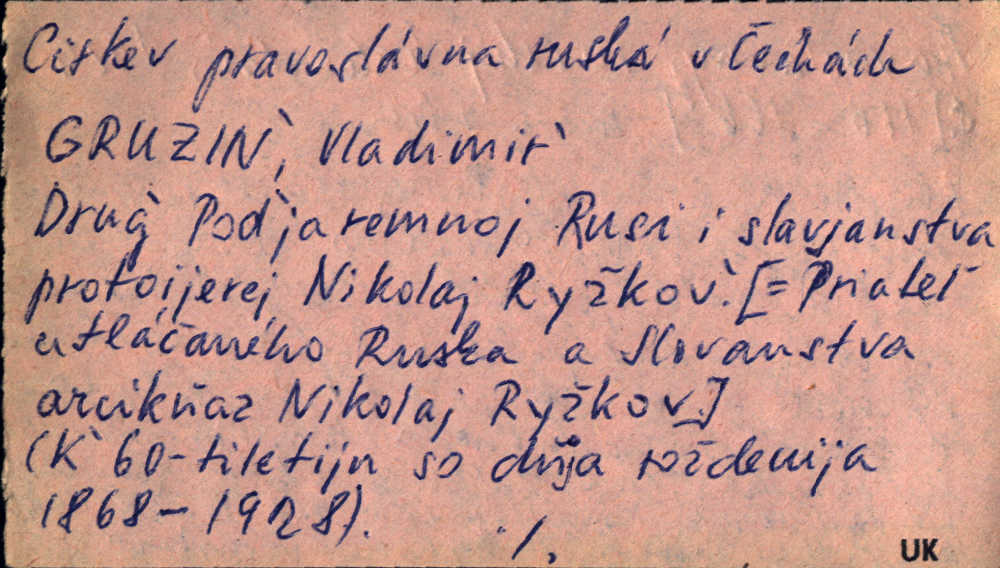 Cirkev pravoslávna ruská v Čechách
GRUZIN', Vladimir'
Drug' Pod'jaremnoj Rusi i slavjanstva
protoijerej Nikolaj Ryžkov'. [= Priateľ
utláčaného Ruska a Slovanstva
arcikňaz Nikolaj Ryžkov]
(K' 60-tiletiju so dňja roždenija
1868-1928).
./.
UK